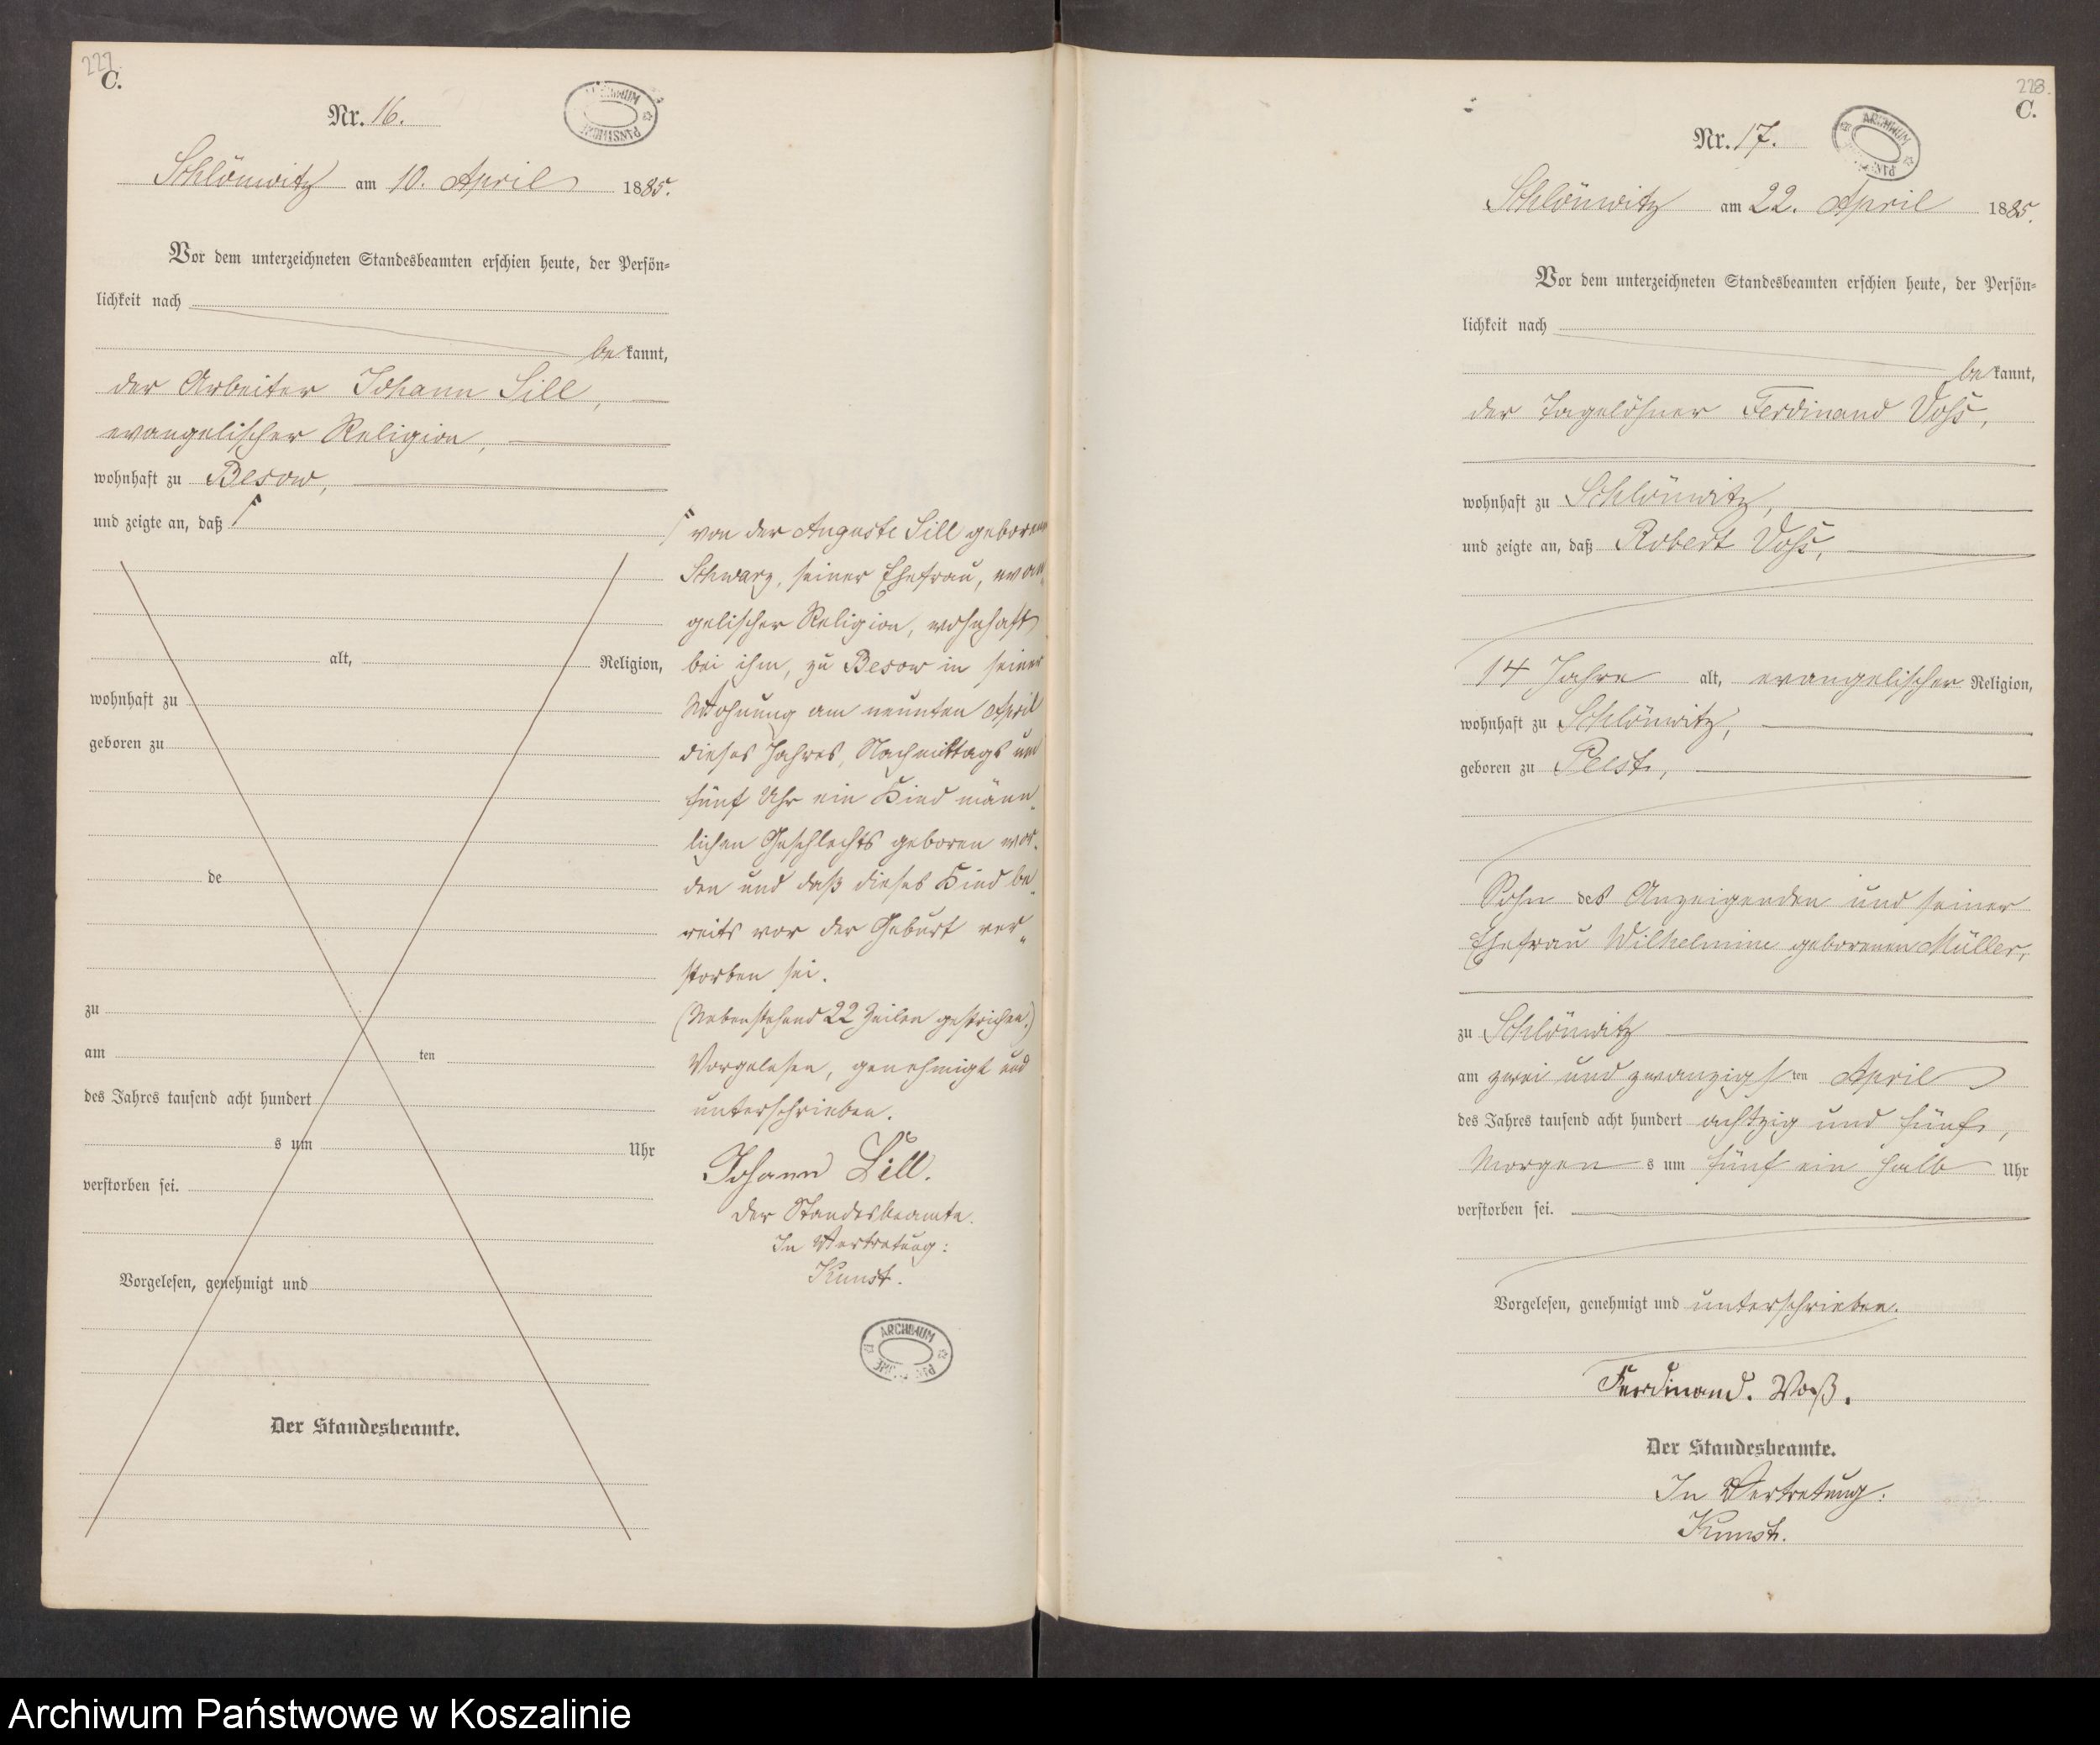 227.
C.
Nr. 16.
ARCHIWUM
Schlönwitz am 10. April 1885.
Vor dem unterzeichneten Standesbeamten erschien heute, der Persön-
lichkeit nach
be kannt,
der Arbeiter Johann Sill,
evangelischer Religion,
wohnhaft zu Besow,
und zeigte an, daß
alt, Religion,
wohnhaft zu
geboren zu
de
zu
am ten
des Jahres tausend acht hundert
s um Uhr
verstorben sei.
Vorgelesen, genehmigt und
Der Standesbeamte.
von der Auguste Sill geborenen
Schwarz, seiner Ehefrau, evan-
gelischer Religion, wohnhaft
bei ihm, zu Besow in seiner
Wohnung am neunten April
dieses Jahres, Nachmittags um
fünf Uhr ein Kind männ-
lichen Geschlechts geboren wor-
den und daß dieses Kind be-
reits vor der Geburt ver-
storben sei.
(Nebenstehend 22 Zeilen gestrichen.)
Vorgelesen, genehmigt und
unterschrieben.
Johann Sill.
Der Standesbeamte.
In Vertretung:
Kunst.
ARCHIWUM
228.
C.
Nr. 17.
ARCHIWUM
Schlönwitz am 22. April 1885.
Vor dem unterzeichneten Standesbeamten erschien heute, der Persön-
lichkeit nach
be kannt,
der Tagelöhner Ferdinand Voß,
wohnhaft zu Schlönwitz,
und zeigte an, daß Robert Voß,
14 Jahre alt, evangelischer Religion,
wohnhaft zu Schlönwitz,
geboren zu Peest,
Sohn des Anzeigenden und seiner
Ehefrau Wilhelmine geborenen Müller,
zu Schlönwitz
am zwei und zwanzigs ten April
des Jahres tausend acht hundert achtzig und fünf,
Morgen s um fünf ein halb Uhr
verstorben sei.
Vorgelesen, genehmigt und unterschrieben.
Ferdinand. Voß.
Der Standesbeamte.
In Vertretung:
Kunst.
Archiwum Państwowe w Koszalinie